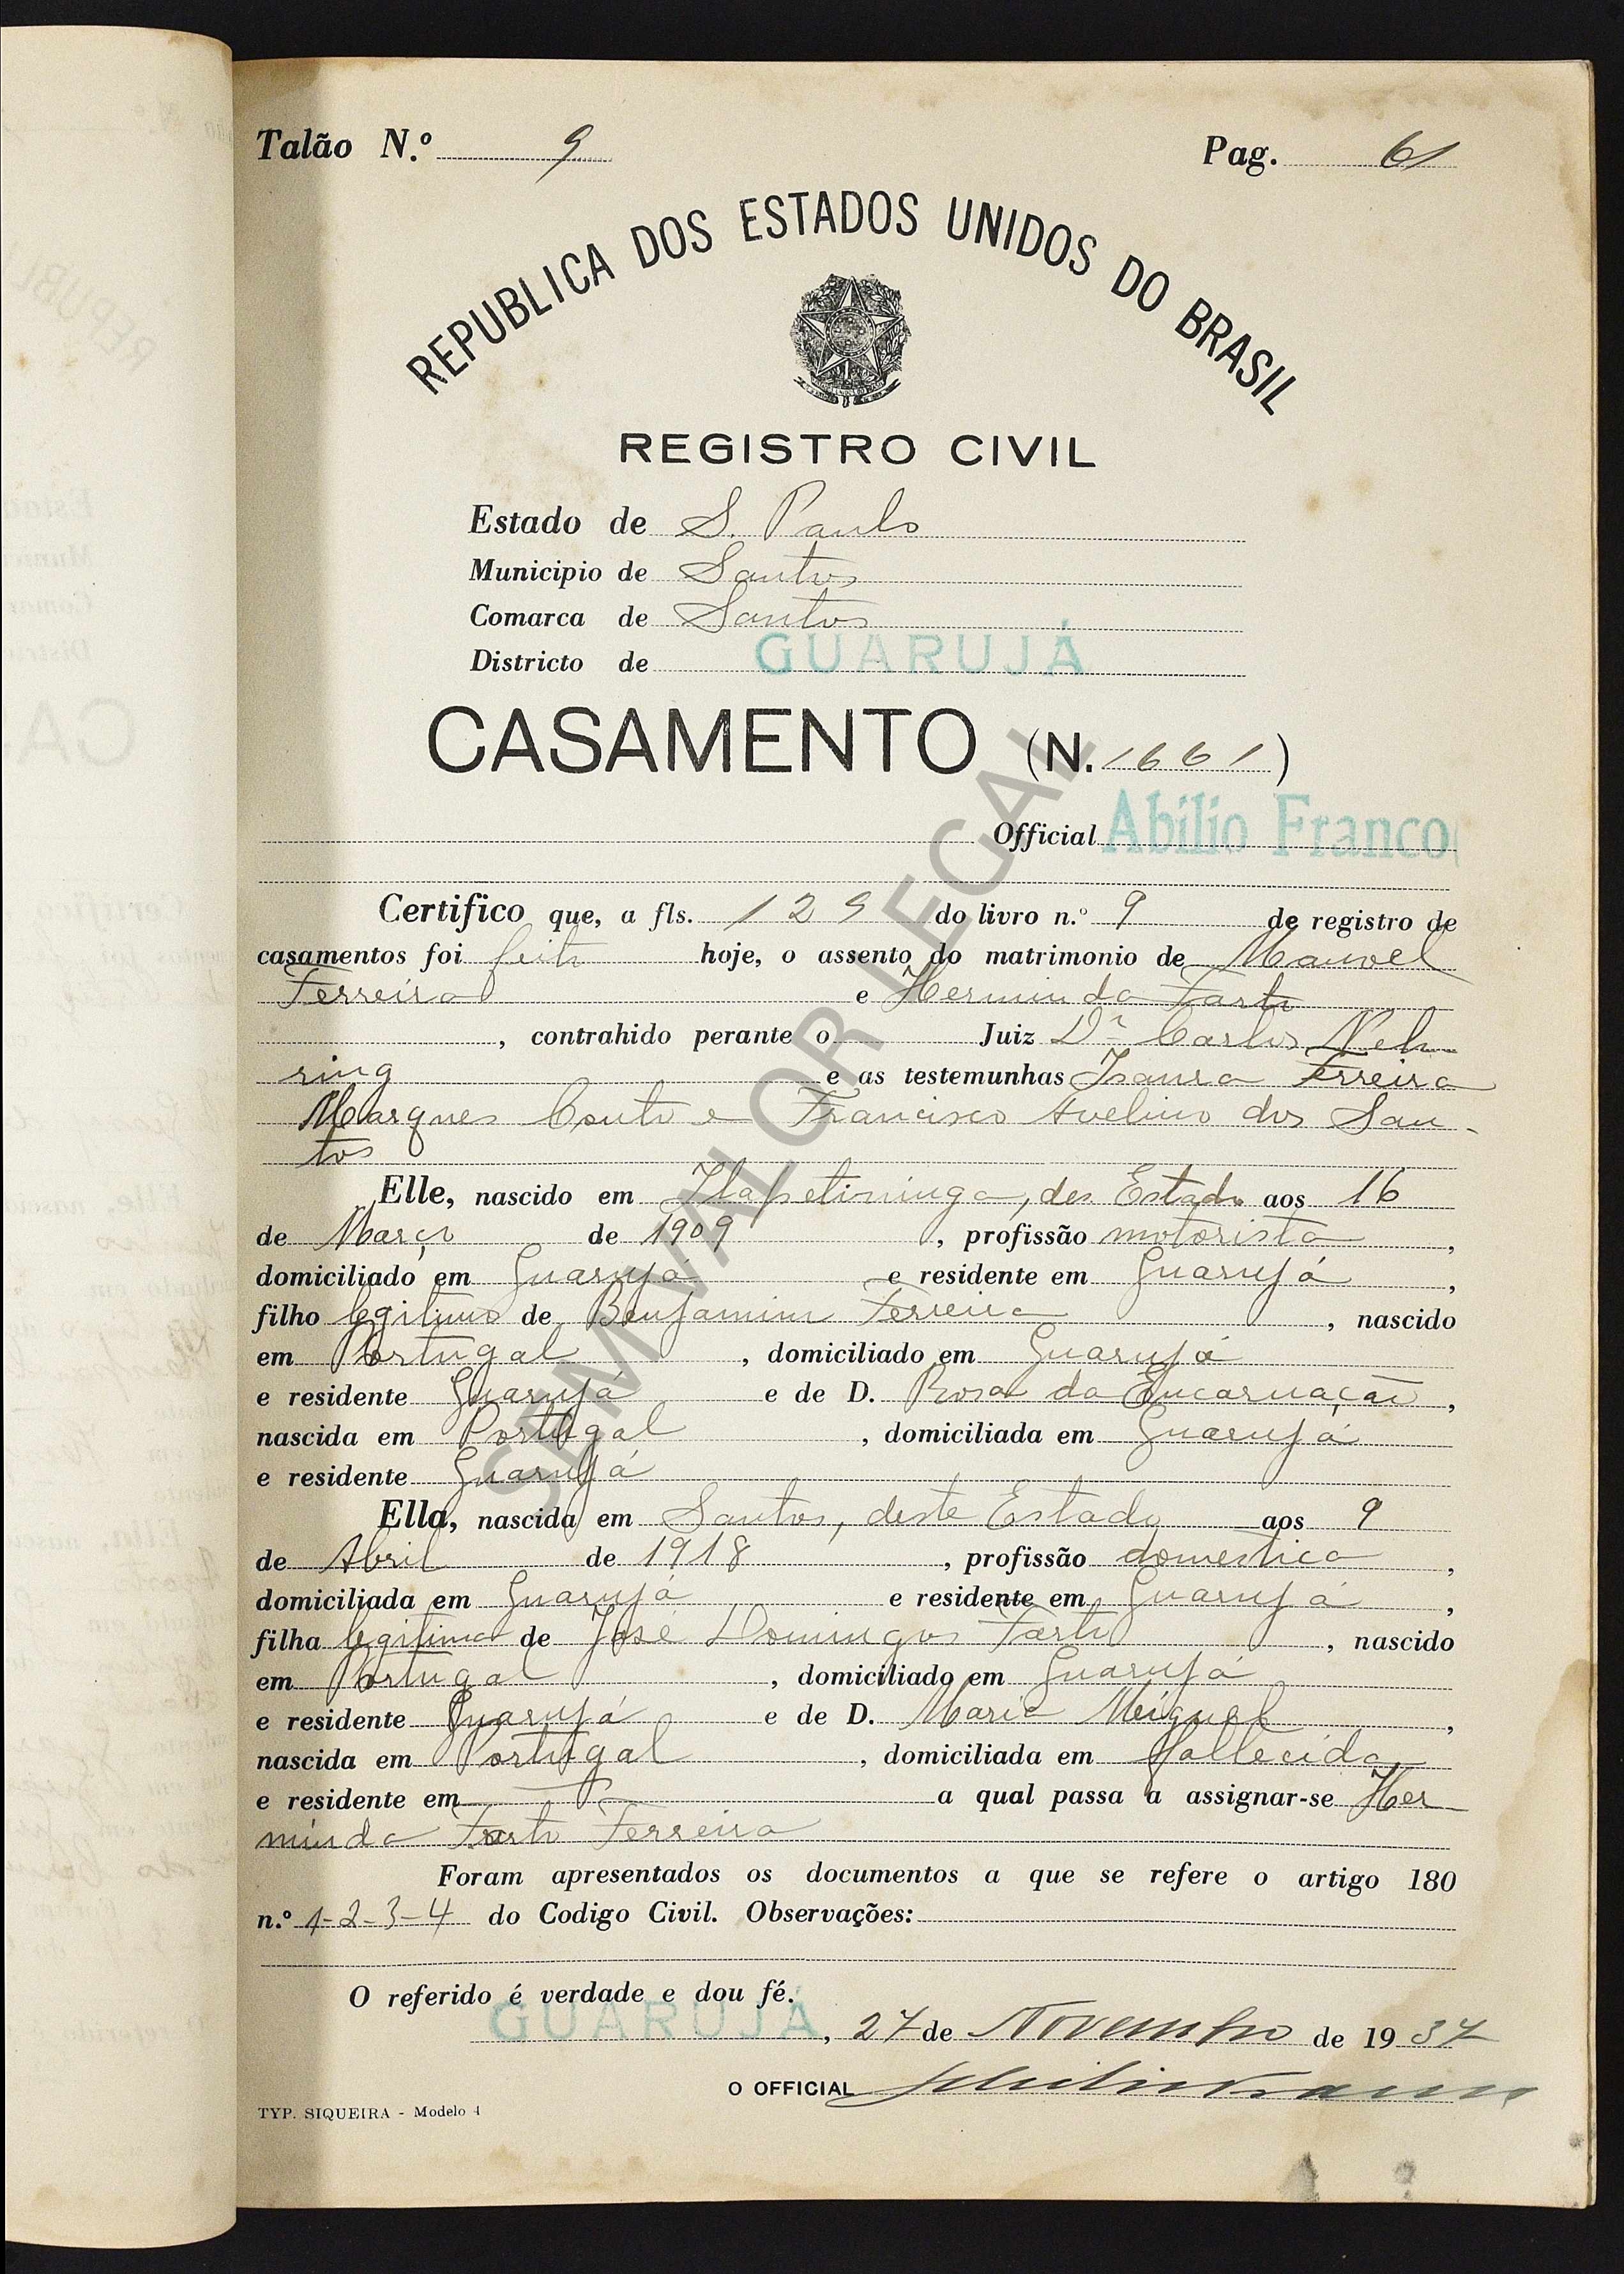 Talão N.º 9 Pag. 61
REPUBLICA DOS ESTADOS UNIDOS DO BRASIL
REGISTRO CIVIL
Estado de S. Paulo
Municipio de Santos
Comarca de Santos
Districto de GUARUJÁ
CASAMENTO (N. 1661)
Official Abilio Franco
Certifico que, a fls. 129 do livro n.º 9 de registro de
casamentos foi feito hoje, o assento do matrimonio de Manoel
Ferreira e Herminda Farto
, contrahido perante o Juiz Dr. Carlos Neh-
ring e as testemunhas Isaura Ferreira
Marques Couto e Francisco Avelino dos San-
tos
Elle, nascido em Itapetininga, des Estado aos 16
de Março de 1909 , profissão motorista ,
domiciliado em Guarujá e residente em Guarujá ,
filho legitimo de Benjamim Ferreira , nascido
em Portugal , domiciliado em Guarujá
e residente Guarujá e de D. Rosa da Encarnação ,
nascida em Portugal , domiciliada em Guarujá
e residente Guarujá
Ella, nascida em Santos, deste Estado aos 9
de Abril de 1918 , profissão domestica ,
domiciliada em Guarujá e residente em Guarujá ,
filha legitima de José Domingos Farto , nascido
em Portugal , domiciliado em Guarujá
e residente Guarujá e de D. Maria Miguel ,
nascida em Portugal , domiciliada em fallecida
e residente em a qual passa a assignar-se Her-
minda Farto Ferreira
Foram apresentados os documentos a que se refere o artigo 180
n.º 1-2-3-4 do Codigo Civil. Observações:
O referido é verdade e dou fé.
GUARUJÁ, 27 de Novembro de 1937
O OFFICIAL Abilio Franco
TYP. SIQUEIRA - Modelo 4
SEM VALOR LEGAL